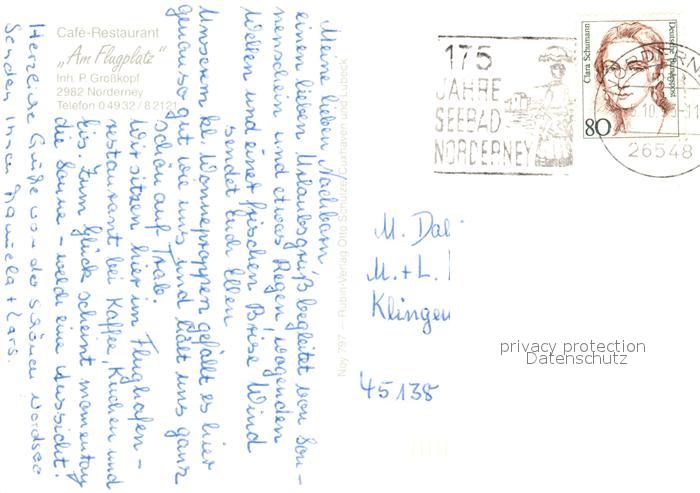 Café-Restaurant
„Am Flugplatz“
Inh. P. Großkopf
2982 Norderney
Telefon 0 49 32 / 8 21 21
Meine lieben Nachbarn,
einen lieben Urlaubsgruß begleitet von Son-
nenschein und etwas Regen, wogenden
Wellen und einer frischen Brise Wind
sendet Euch Ellen
Unserem kl. Wonneproppen gefällt es hier
genau so gut wie uns und hält uns ganz
schön auf Trab.
Wir sitzen hier im Flughafen-
restaurant bei Kaffee, Kuchen und
Eis. Zum Glück scheint momentan
die Sonne – welch eine Aussicht!
Herzliche Grüße von der schönen Nordsee
senden Ihnen Daniela + Lars.
Noy 797 — Rubin-Verlag Otto Schulze, Cuxhaven und Lübeck
175
JAHRE
SEEBAD
NORDERNEY
Clara Schumann
Deutsche Bundespost
80
NORDERN
26548
M. Dal
M. + L.
Klingen
45138
privacy protection
Datenschutz